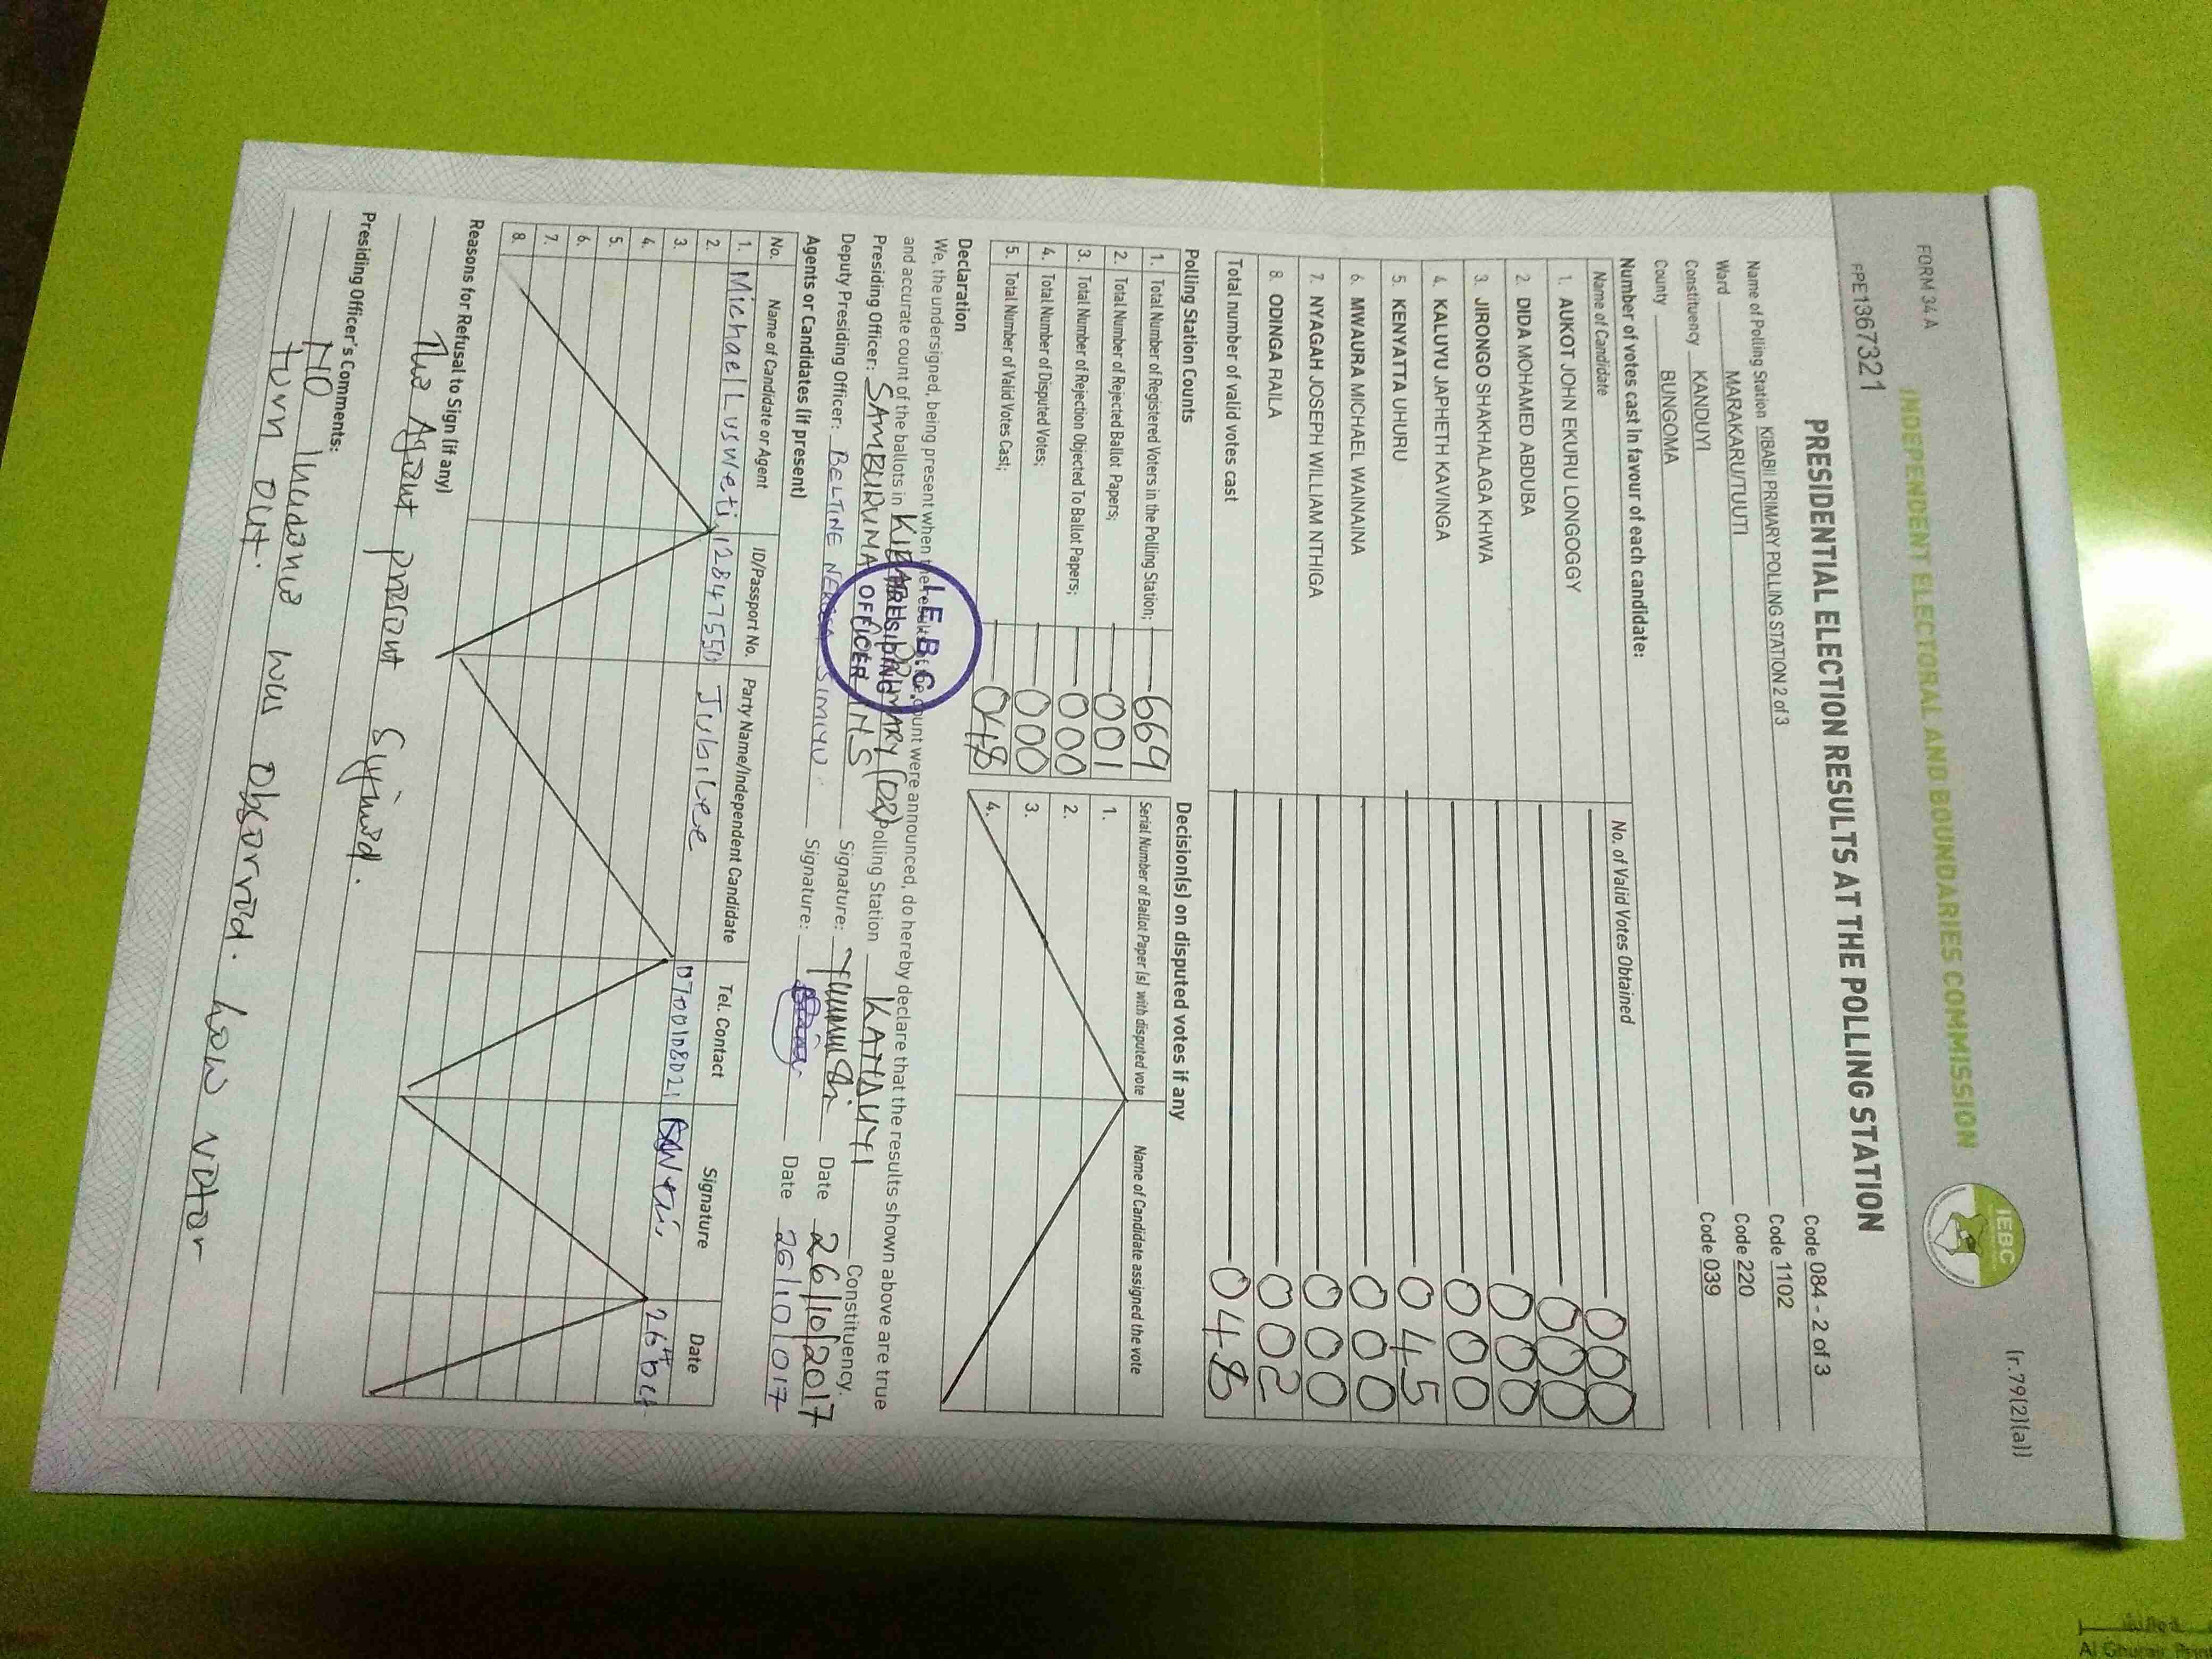 FORM 34 A
(r.79(2)(a))
INDEPENDENT ELECTORAL AND BOUNDARIES COMMISSION
IEBC
FPE1367321
PRESIDENTIAL ELECTION RESULTS AT THE POLLING STATION
Name of Polling Station KIBABII PRIMARY POLLING STATION 2 of 3 Code 084 - 2 of 3
Ward MARAKARU/TUUTI Code 1102
Constituency KANDUYI Code 220
County BUNGOMA Code 039
Number of votes cast in favour of each candidate:
Name of Candidate No. of Valid Votes Obtained
1. AUKOT JOHN EKURU LONGOGGY 000
2. DIDA MOHAMED ABDUBA 000
3. JIRONGO SHAKHALAGA KHWA 000
4. KALUYU JAPHETH KAVINGA 000
5. KENYATTA UHURU 045
6. MWAURA MICHAEL WAINAINA 000
7. NYAGAH JOSEPH WILLIAM NTHIGA 000
8. ODINGA RAILA 002
Total number of valid votes cast 048
Polling Station Counts
1. Total Number of Registered Voters in the Polling Station; 669
2. Total Number of Rejected Ballot Papers; 001
3. Total Number of Rejection Objected To Ballot Papers; 000
4. Total Number of Disputed Votes; 000
5. Total Number of Valid Votes Cast; 048
Decision(s) on disputed votes if any
Serial Number of Ballot Paper (s) with disputed vote Name of Candidate assigned the vote
1.
2.
3.
4.
Declaration
We, the undersigned, being present when the results of the count were announced, do hereby declare that the results shown above are true
and accurate count of the ballots in KIBABII PRIMARY (02) Polling Station KANDUYI Constituency.
Presiding Officer: SAMBIRUMA Signature: Date 26/10/2017
Deputy Presiding Officer: BELTINE SIMIYU Signature: Date 26/10/017
I.E.B.C.
PRESIDING
OFFICER
Agents or Candidates (if present)
No. Name of Candidate or Agent ID/Passport No. Party Name/Independent Candidate Tel. Contact Signature Date
1. Michael Lusweti 12847550 Jubilee 0700108021 26th Oct
2.
3.
4.
5.
6.
7.
8.
Reasons for Refusal to Sign (if any)
The Agent present Signed.
Presiding Officer's Comments:
NO Incidence was observed. Low voter
turn out.